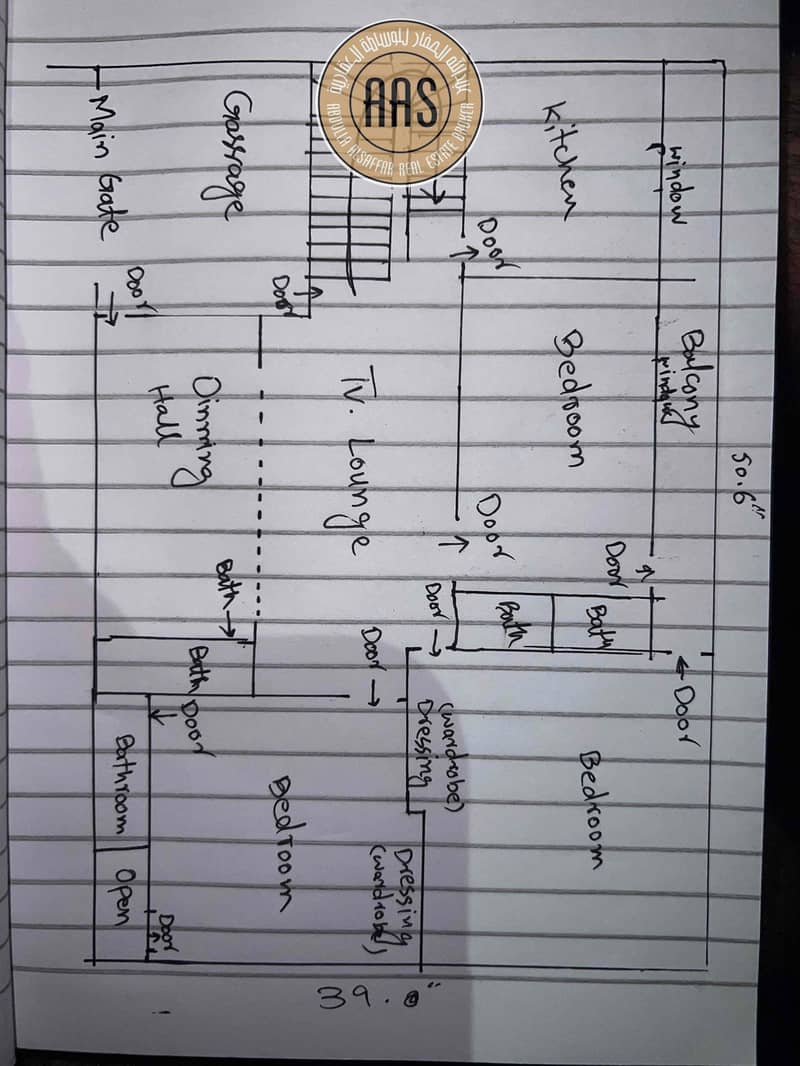 عبدالله الصفار للوساطة العقارية
AAS
ABDULLA ALSAFFAR REAL ESTATE BROKER
Main Gate
Garrage
Kitchen
window
Door
Door
Door
Dinning
Hall
TV. Lounge
Bedroom
Balcony
window
50.6"
Door
Door
Bath
Bath
Door
Bath
Bath
Door
Door
Door
Bathroom
Open
Door
Bedroom
Dressing
(wardrobe)
Dressing
(wardrobe)
Bedroom
39.0"